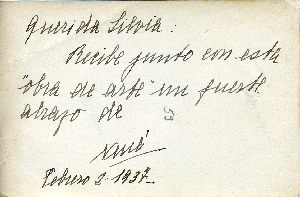 Querida Silvia:
Recibe junto con esta
"obra de arte" un fuerte
abrazo de
53
René
Febrero 2-1937-